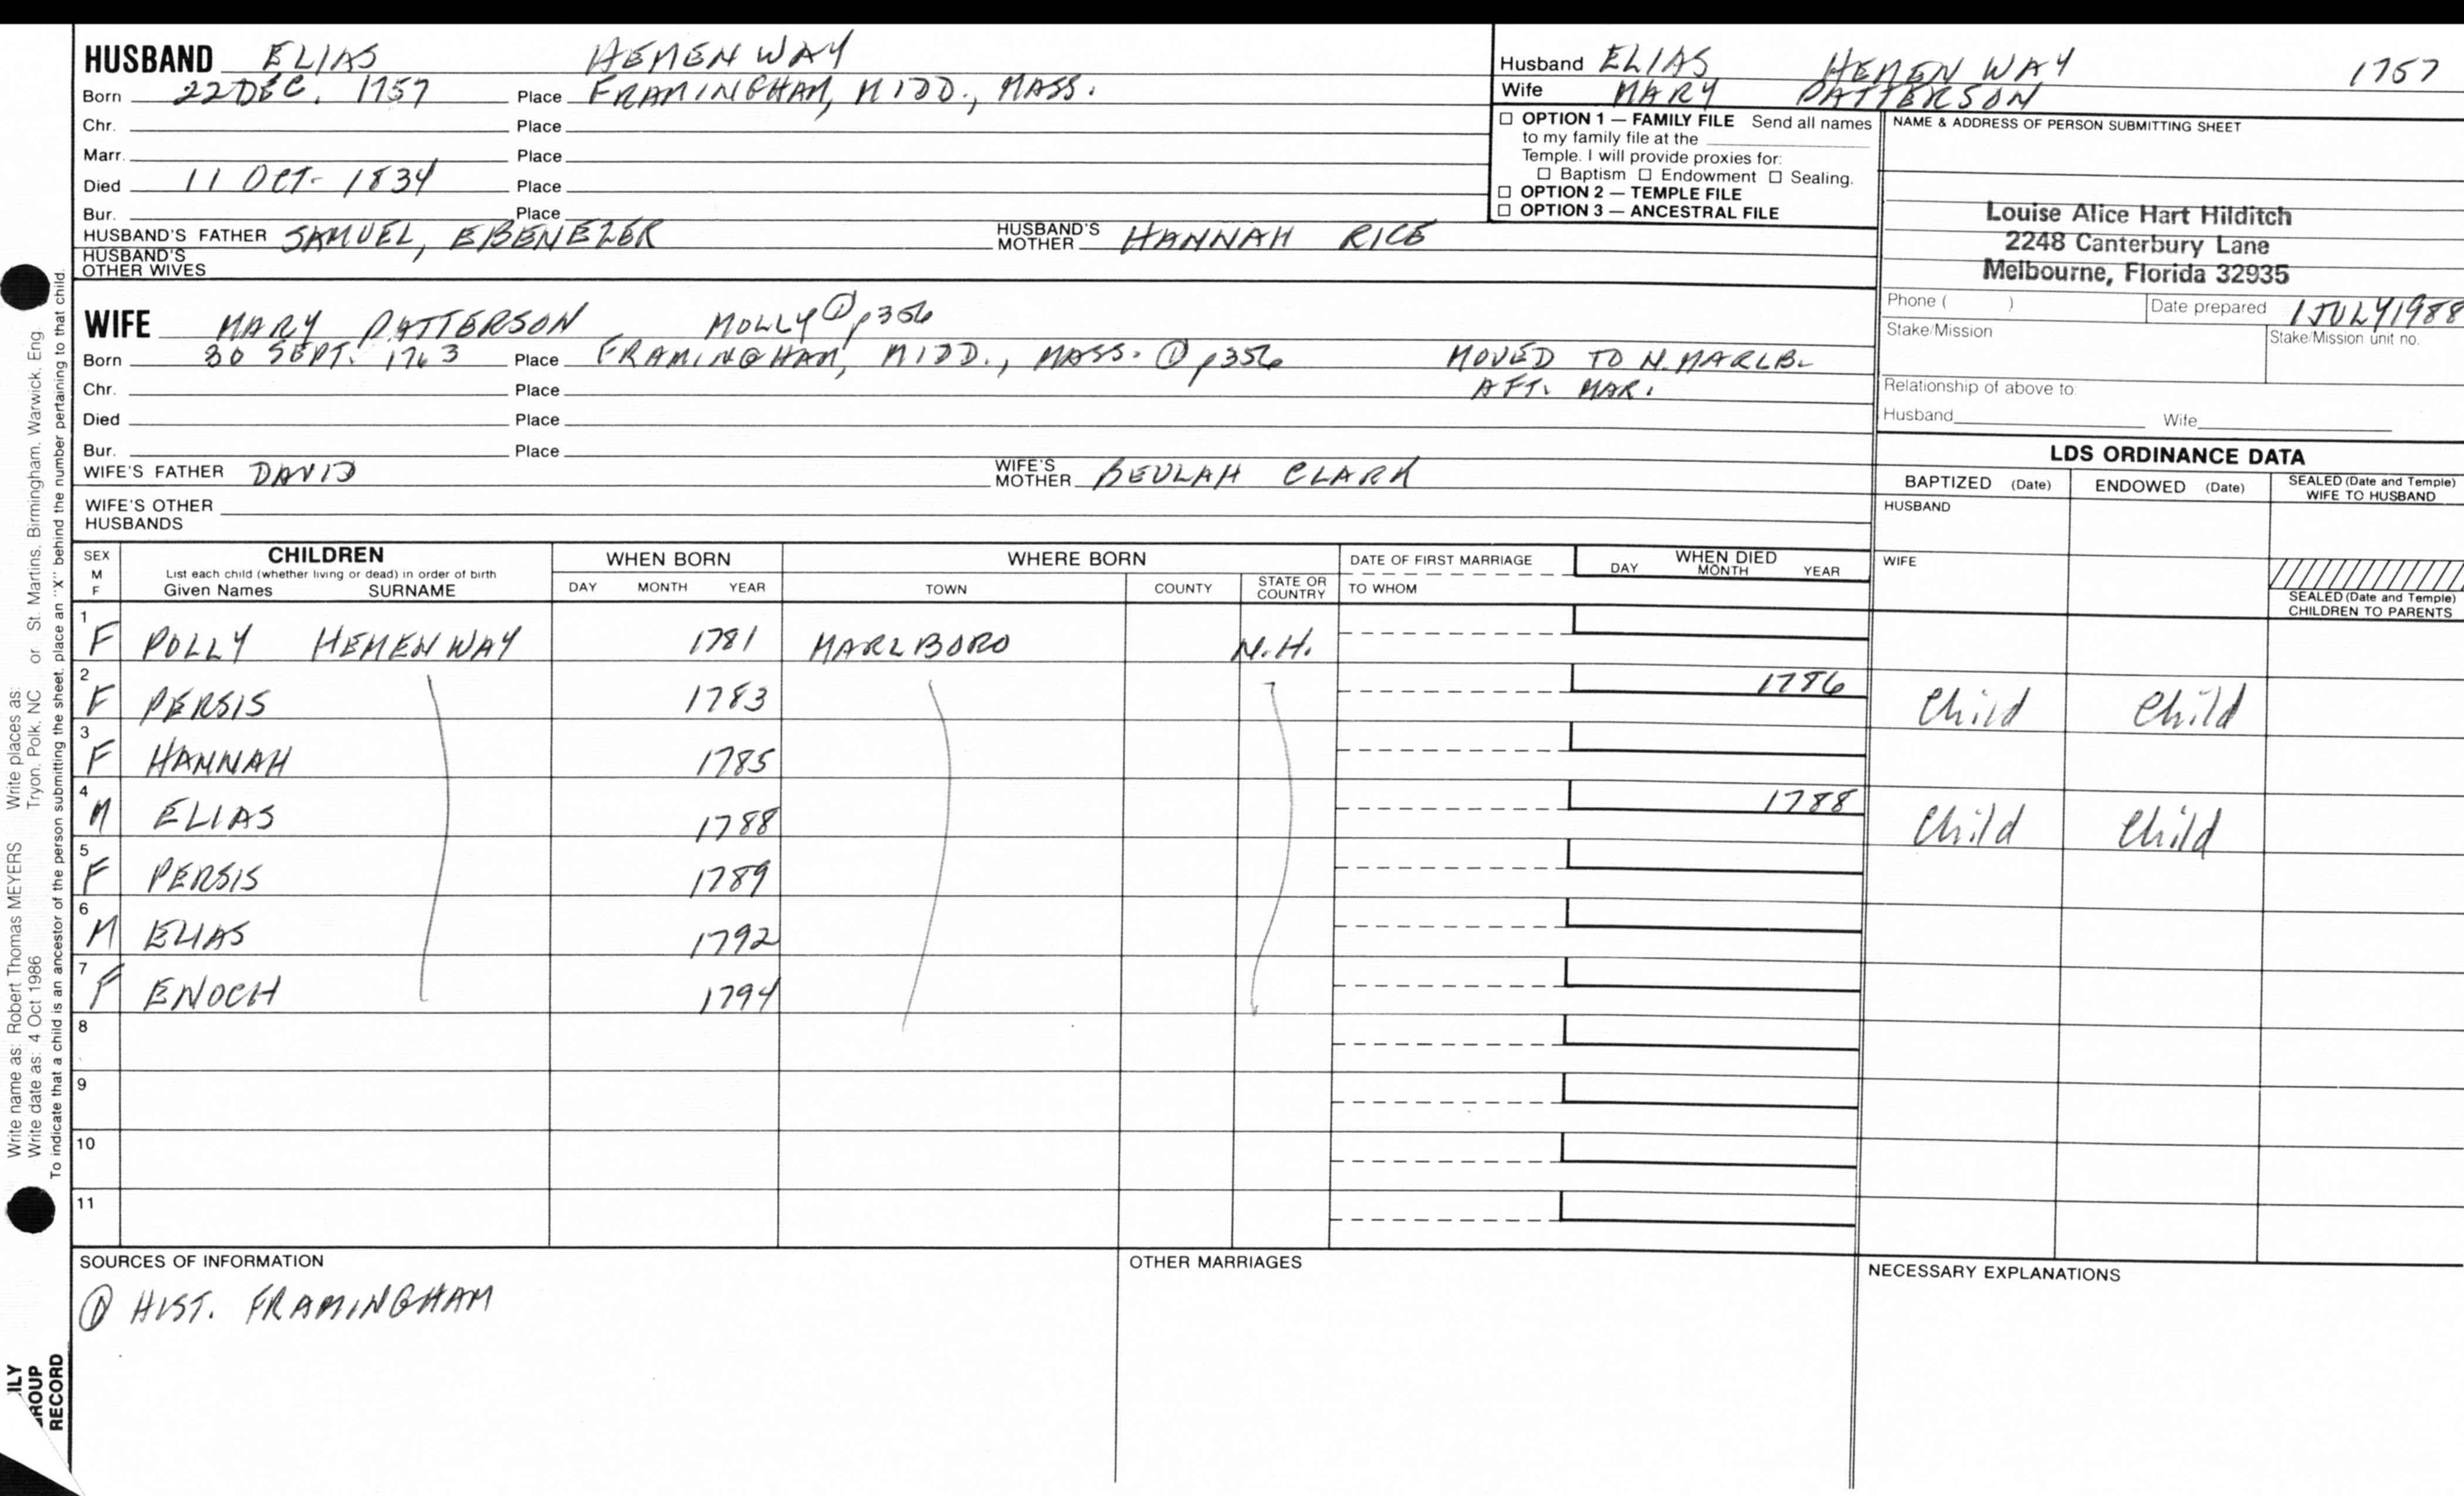 HUSBAND ELIAS HEMENWAY
Born 22 DEC. 1757 Place FRAMINGHAM, MIDD., MASS.
Chr. Place
Marr. Place
Died 11 OCT- 1834 Place
Bur. Place
HUSBAND'S FATHER SAMUEL, EBENEZER HUSBAND'S MOTHER HANNAH RICE
HUSBAND'S OTHER WIVES
Husband ELIAS HEMENWAY 1757
Wife MARY PATTERSON
☐ OPTION 1 — FAMILY FILE Send all names
to my family file at the
Temple. I will provide proxies for:
☐ Baptism ☐ Endowment ☐ Sealing.
☐ OPTION 2 — TEMPLE FILE
☐ OPTION 3 — ANCESTRAL FILE
NAME & ADDRESS OF PERSON SUBMITTING SHEET
Louise Alice Hart Hilditch
2248 Canterbury Lane
Melbourne, Florida 32935
Phone ( ) Date prepared 1 JULY 1988
Stake/Mission Stake/Mission unit no.
Relationship of above to:
Husband Wife
WIFE MARY PATTERSON MOLLY ① p356
Born 30 SEPT. 1763 Place FRAMINGHAM, MIDD., MASS. ① p356 MOVED TO N. MARLB-
AFT. MAR.
Chr. Place
Died Place
Bur. Place
WIFE'S FATHER DAVID WIFE'S MOTHER BEULAH CLARK
WIFE'S OTHER HUSBANDS
LDS ORDINANCE DATA
BAPTIZED (Date) ENDOWED (Date) SEALED (Date and Temple) WIFE TO HUSBAND
HUSBAND
WIFE
SEALED (Date and Temple) CHILDREN TO PARENTS
SEX M F
CHILDREN
List each child (whether living or dead) in order of birth
Given Names SURNAME
WHEN BORN
DAY MONTH YEAR
WHERE BORN
TOWN COUNTY STATE OR COUNTRY
DATE OF FIRST MARRIAGE
TO WHOM
WHEN DIED
DAY MONTH YEAR
1 F POLLY HEMENWAY 1781 MARLBORO N.H.
2 F PERSIS 1783 1786 Child Child
3 F HANNAH 1785
4 M ELIAS 1788 1788 Child Child
5 F PERSIS 1789
6 M ELIAS 1792
7 F ENOCH 1794
8
9
10
11
SOURCES OF INFORMATION
① HIST. FRAMINGHAM
OTHER MARRIAGES
NECESSARY EXPLANATIONS
Write name as: Robert Thomas MEYERS Write places as:
Write date as: 4 Oct 1986 Tryon, Polk, NC or St. Martins, Birmingham, Warwick, Eng
To indicate that a child is an ancestor of the person submitting the sheet, place an "X" behind the number pertaining to that child.
ILY
ROUP
RECORD